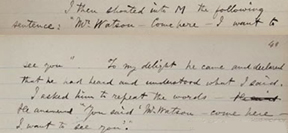 I then shouted into M the following
sentence: "Mr Watson - Come here - I want to
41
see you" To my delight he came and declared
that he had heard and understood what I said.
I asked him to repeat the words - He said
He answered "You said 'Mr Watson - come here -
I want to see you.'